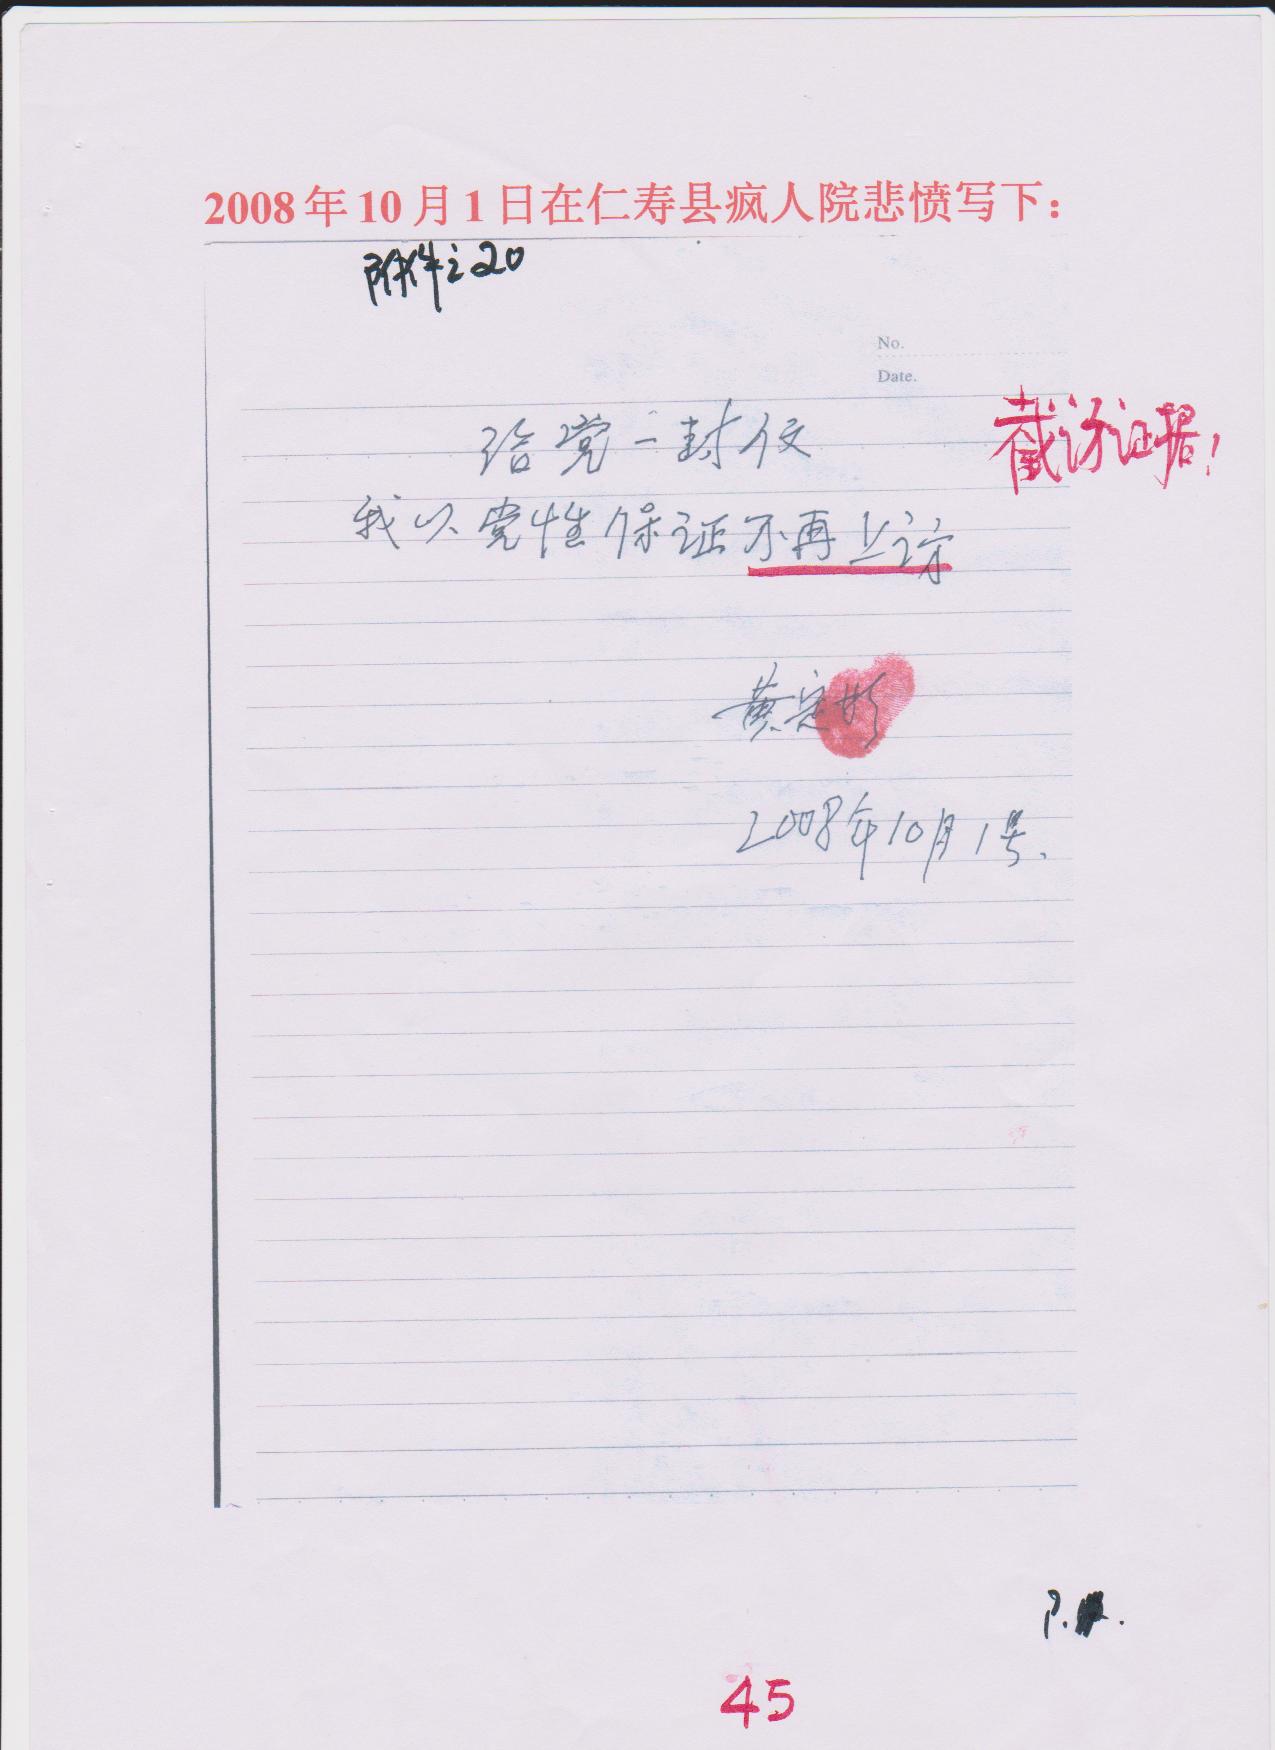 2008年10月1日在仁寿县疯人院悲愤写下：
附件之20
No.
Date.
截访证据！
给党一封信
我以党性保证不再上访
黄定
2008年10月1号.
P.
45